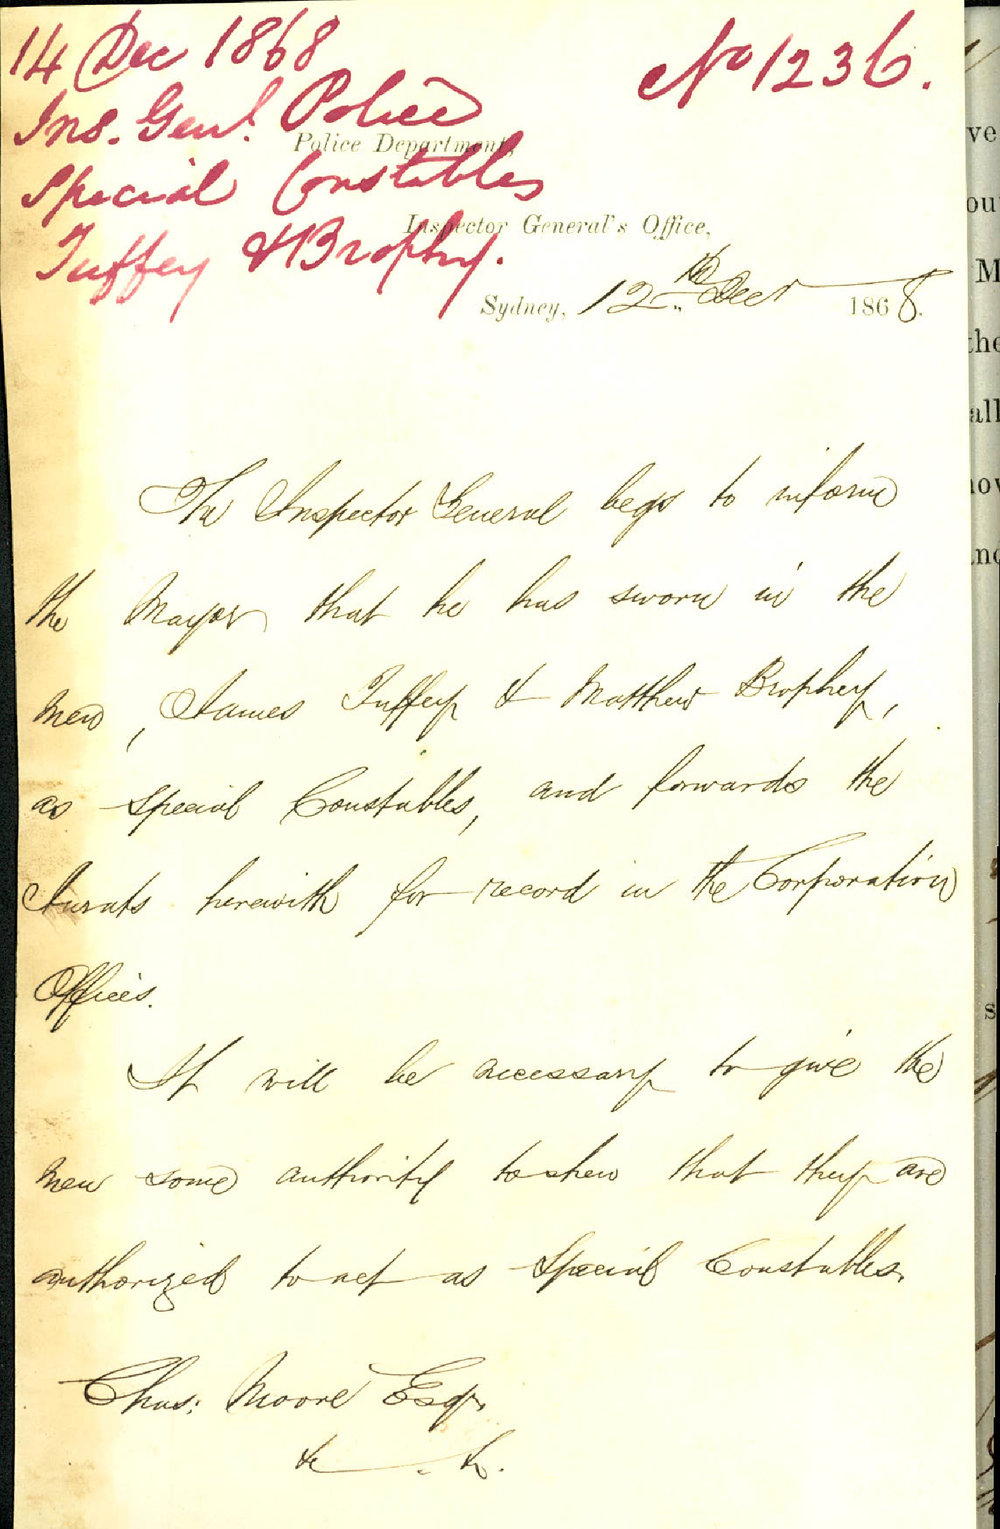 14 Dec 1868
No 1236.
Ins. Genl. Police
Police Department,
Special Constables
Inspector General's Office,
Tuffey & Brophy.
Sydney, 12th Decr 1868.
The Inspector General begs to inform
the Mayor that he has sworn in the
men, James Tuffey & Matthew Brophey,
as Special Constables, and forwards the
Jurats herewith for record in the Corporation
Offices.
It will be necessary to give the
men some authority to shew that they are
authorized to act as Special Constables.
Chas: Moore Esqr.
&c . &c.